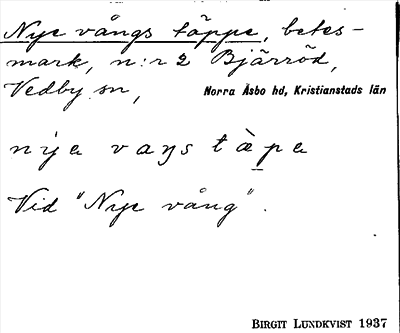 Nye vångs täppe, betes-
mark, n:r 2 Bjärröd,
Vedby sn, Norra Åsbo hd, Kristianstads län
nye vaŋs tæ̀pa
Vid "Nye vång".
BIRGIT LUNDKVIST 1937